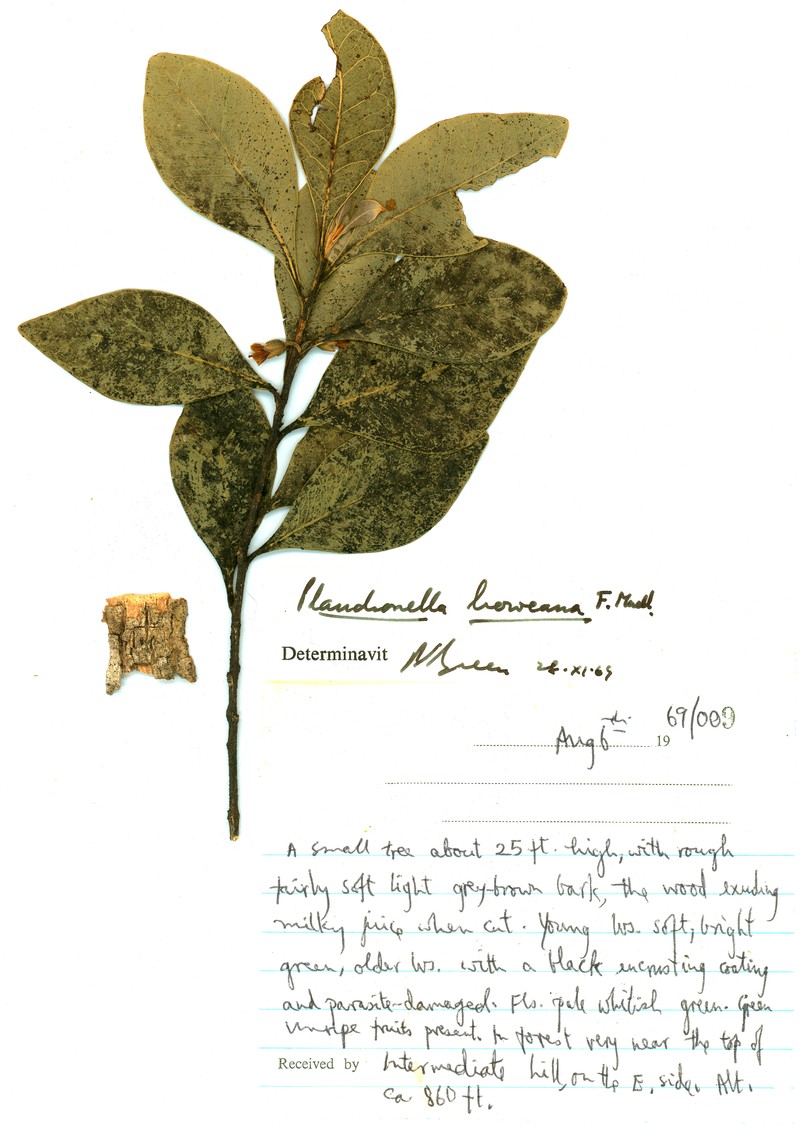 Planchonella howeana F. Muell.
Determinavit PSGreen 28.XI.69
Aug 6th 1969/009
A small tree about 25 ft. high, with rough
fairly soft light grey-brown bark, the wood exuding
milky juice when cut. Young lvs. soft, bright
green, older lvs. with a black encrusting coating
and parasite-damaged. Fls. pale whitish green. Green
unripe fruits present. In forest very near the top of
Received by Intermediate hill, on the E. side. Alt.
ca 860 ft.